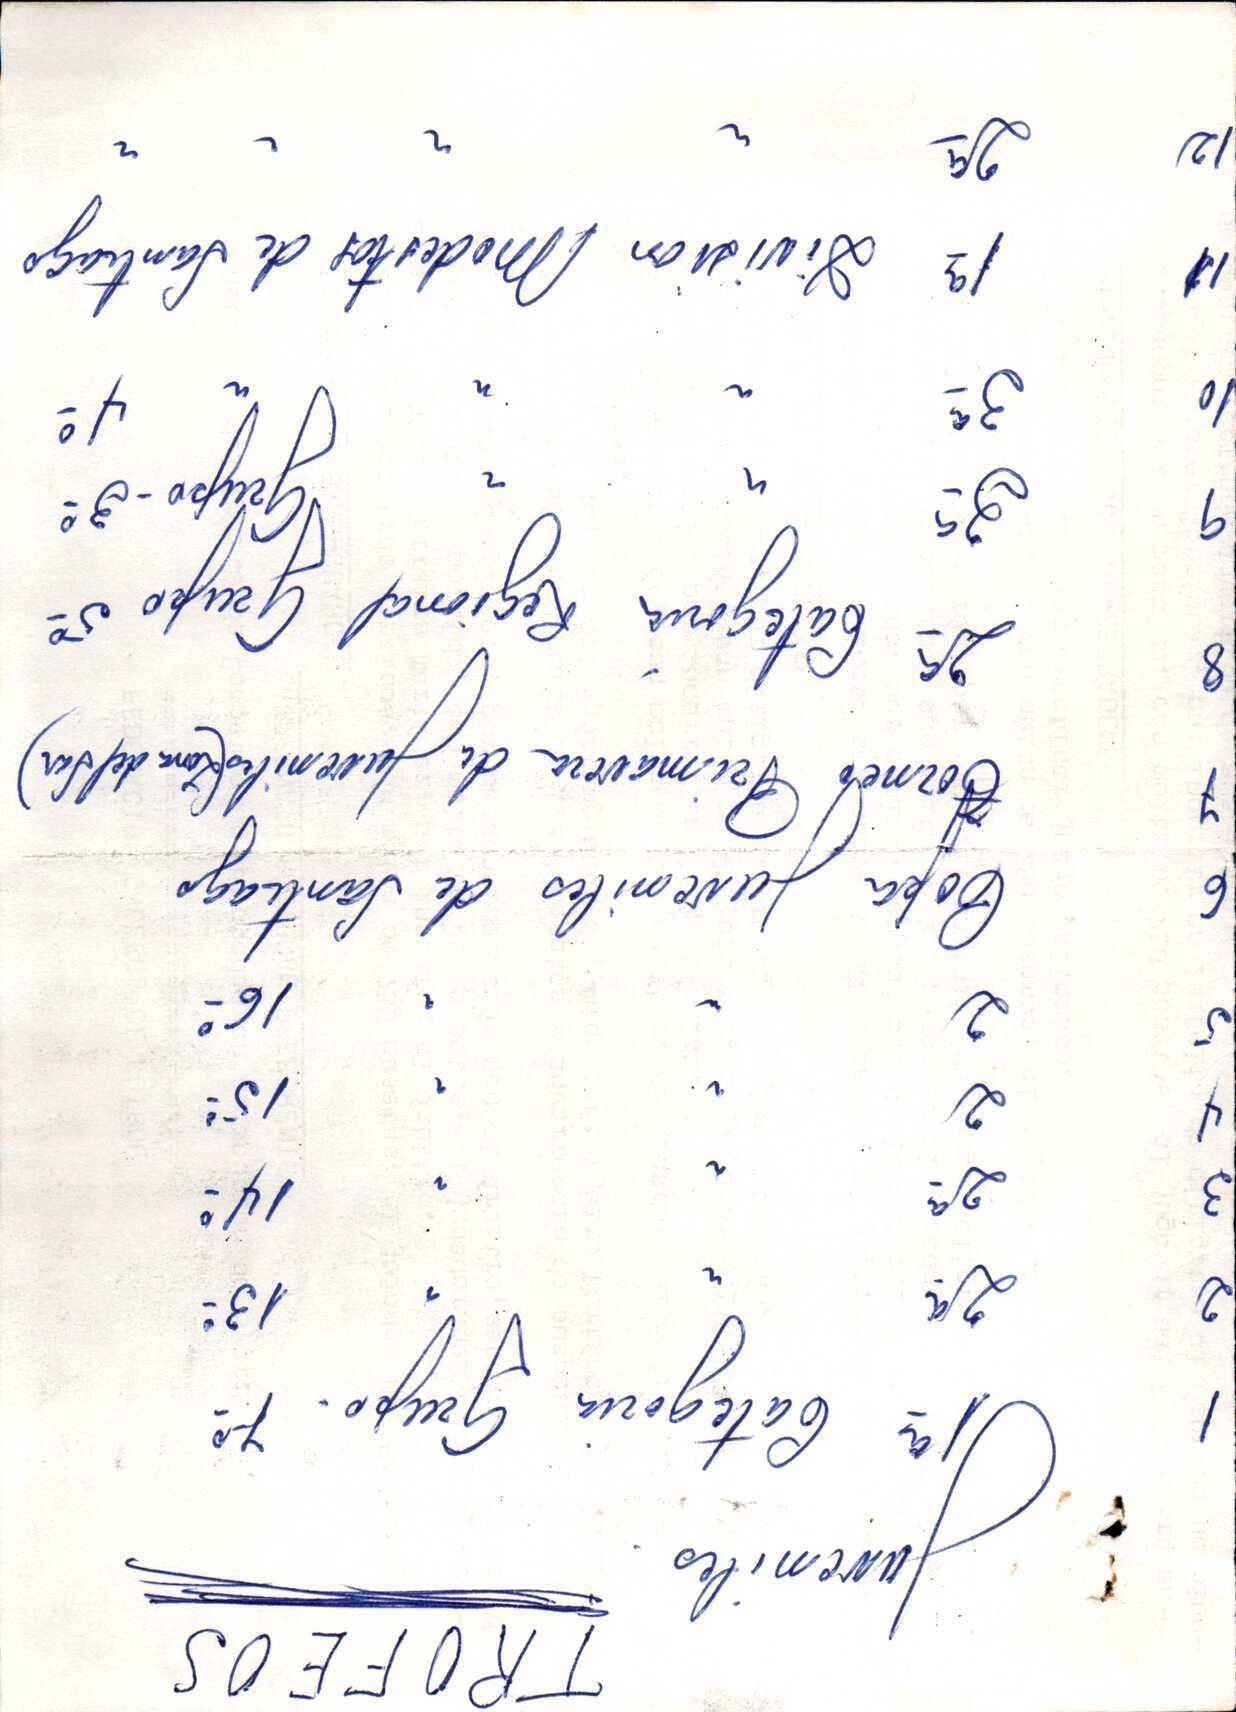 TROFEOS
Juveniles.
1 1ª Categoria Grupo. 7º
2 2ª " " 13º
3 2ª " " 14º
4 2 " " 15º
5 2 " " 16º
6 Copa Juveniles de Santiago
7 Torneo Primavera de Juveniles (Zona del Sar)
8 2ª Categoria Regional Grupo 5º
9 3ª " " Grupo - 3º
10 3ª " " " 4º
11 1ª Division Modestos de Santiago
12 2ª " " " "